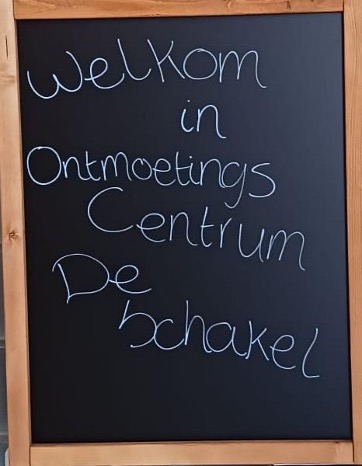 Welkom
in
Ontmoetings
Centrum
De
Schakel